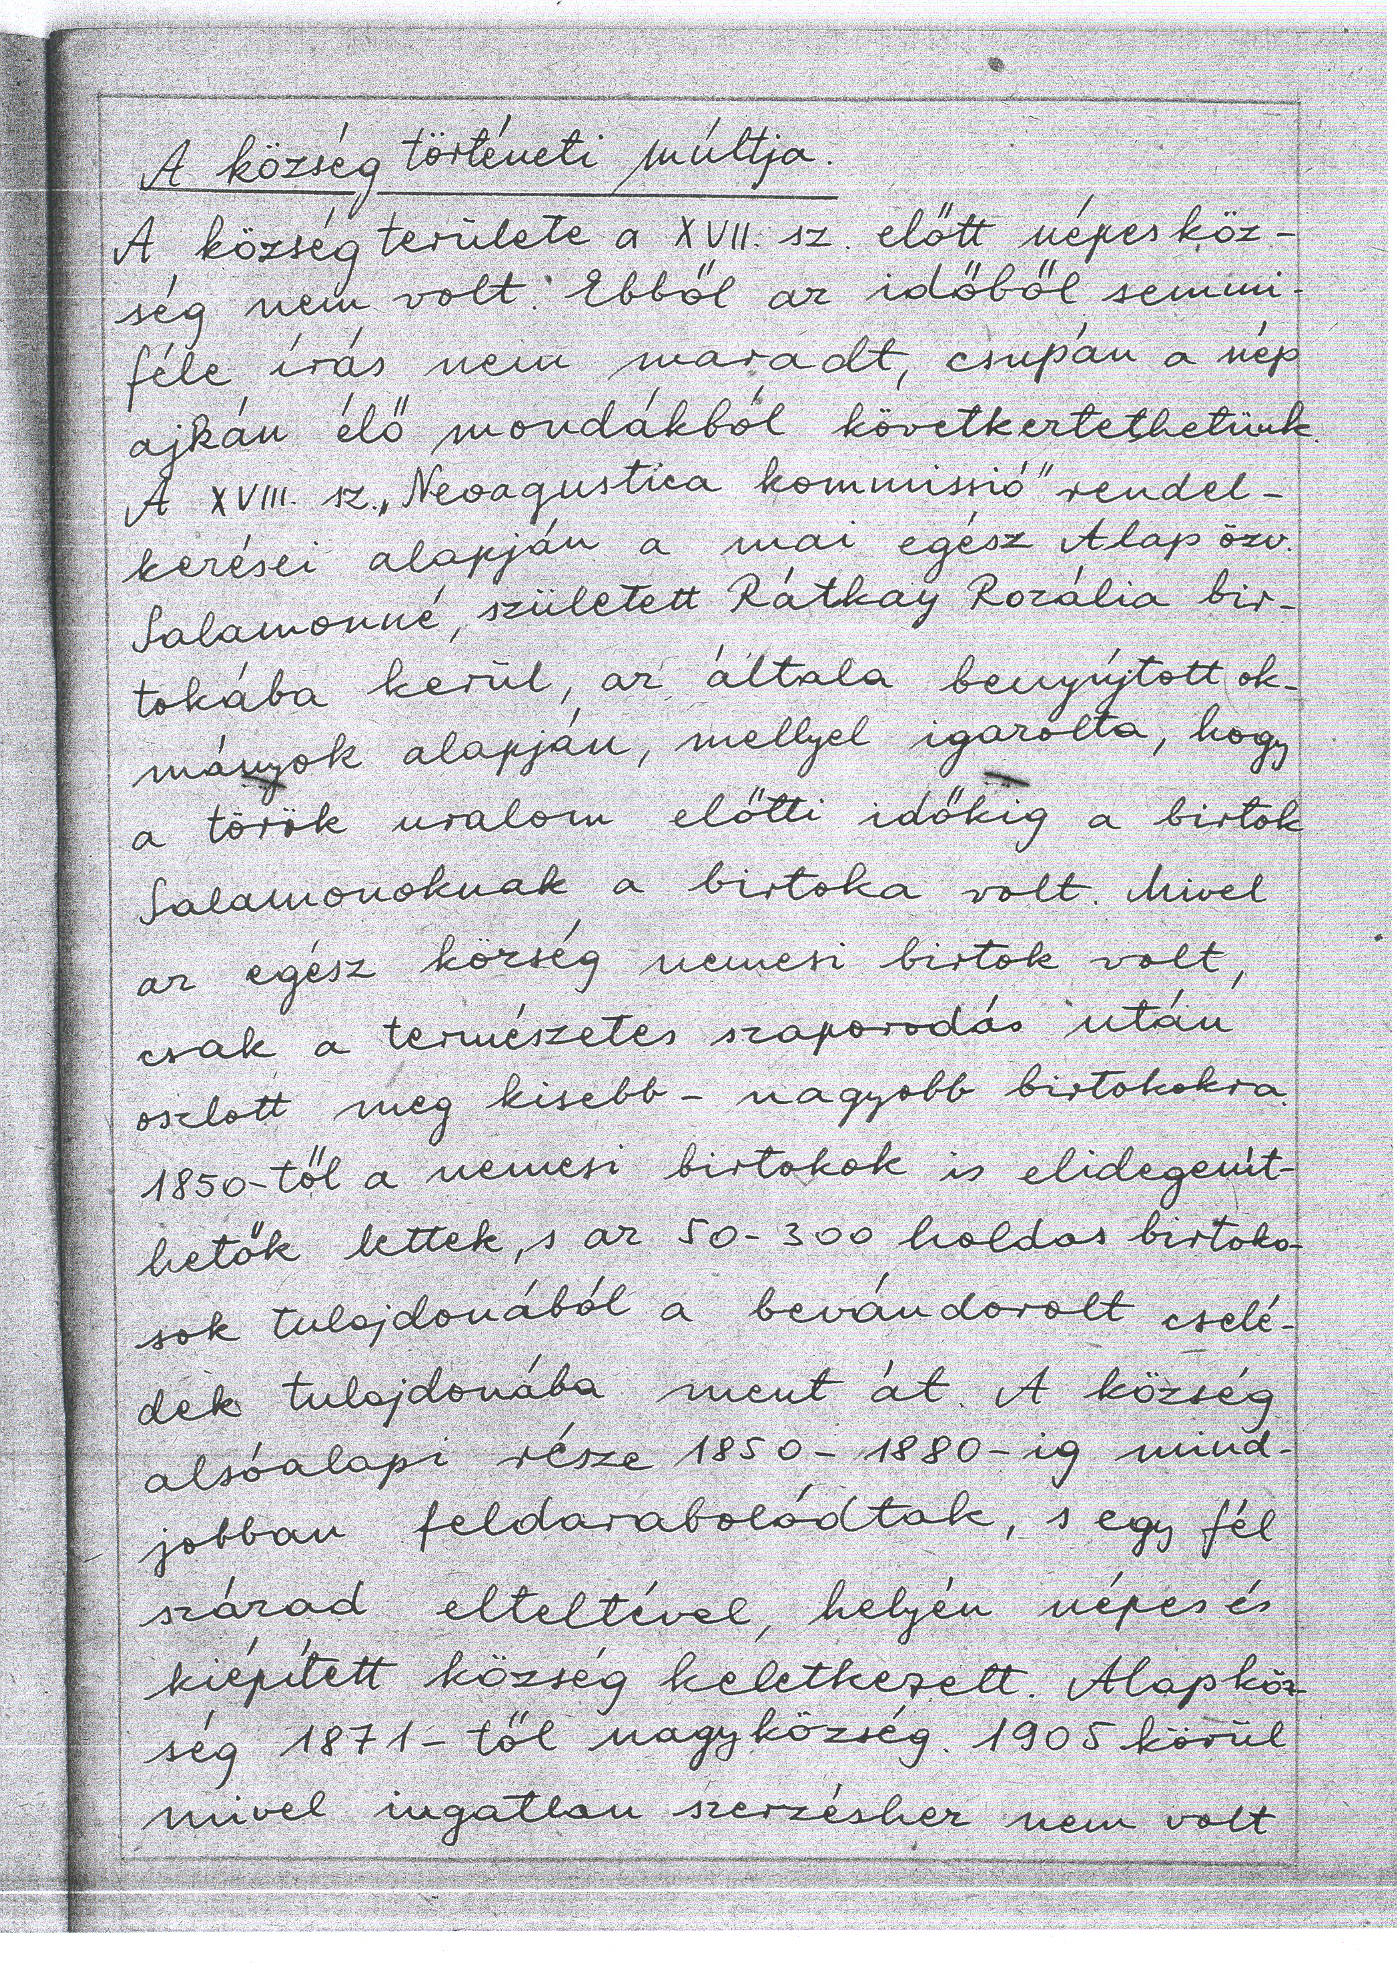 A község történeti múltja.
A község területe a XVII. sz. előtt népes köz-
ség nem volt. Ebből az időből semmi-
féle írás nem maradt, csupán a nép
ajkán élő mondákból következtethetünk.
A XVIII. sz. „Neoagustica kommissió" rendel-
kezései alapján a mai egész Alap özv.
Salamonné, született Rátkay Rozália bir-
tokába kerül, az általa benyújtott ok-
mányok alapján, mellyel igazolta, hogy
a török uralom előtti időkig a birtok
Salamonoknak a birtoka volt. Mivel
az egész község nemesi birtok volt,
csak a természetes szaporodás után
oszlott meg kisebb - nagyobb birtokokra.
1850-től a nemesi birtokok is elidegenít-
hetők lettek, s az 50-300 holdas birtoko-
sok tulajdonából a bevándorolt cselé-
dek tulajdonába ment át. A község
alsóalapi része 1850-1880-ig mind-
jobban feldarabolódtak, s egy fél
század elteltével, helyén népes és
kiépített község keletkezett. Alapköz-
ség 1871-től nagyközség. 1905 körül
mivel ingatlan szerzéshez nem volt